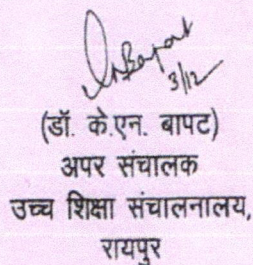 3/12
(डॉ. के.एन. बापट)
अपर संचालक
उच्च शिक्षा संचालनालय,
रायपुर